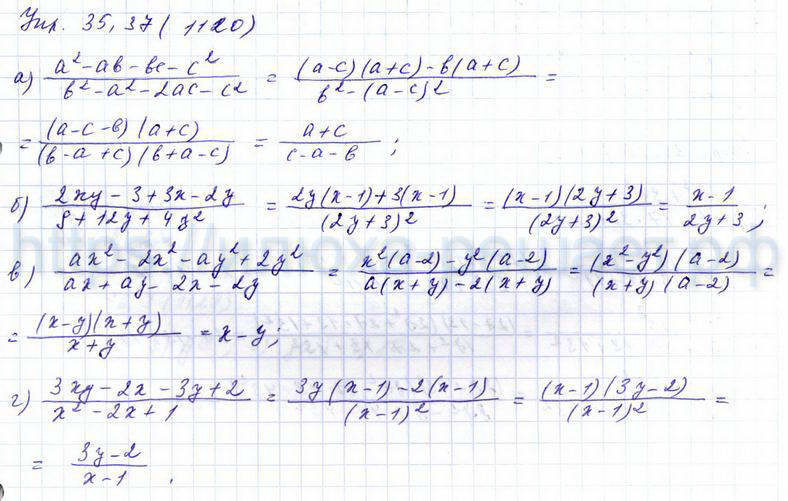 Упр. 35,37 (1120)
а) (a² - ab - bc - c²)/(b² - a² - 2ac - c²) = ((a-c)(a+c) - b(a+c))/(b² - (a-c)²) =
= ((a-c-b)(a+c))/((b-a+c)(b+a-c)) = (a+c)/(c-a-b) ;
б) (2xy - 3 + 3x - 2y)/(9 + 12y + 4y²) = (2y(x-1) + 3(x-1))/((2y+3)²) = ((x-1)(2y+3))/((2y+3)²) = (x-1)/(2y+3) ;
в) (ax² - 2x² - ay² + 2y²)/(ax + ay - 2x - 2y) = (x²(a-2) - y²(a-2))/(a(x+y) - 2(x+y)) = ((x²-y²)(a-2))/((x+y)(a-2)) =
= ((x-y)(x+y))/(x+y) = x-y ;
г) (3xy - 2x - 3y + 2)/(x² - 2x + 1) = (3y(x-1) - 2(x-1))/((x-1)²) = ((x-1)(3y-2))/((x-1)²) =
= (3y-2)/(x-1) .